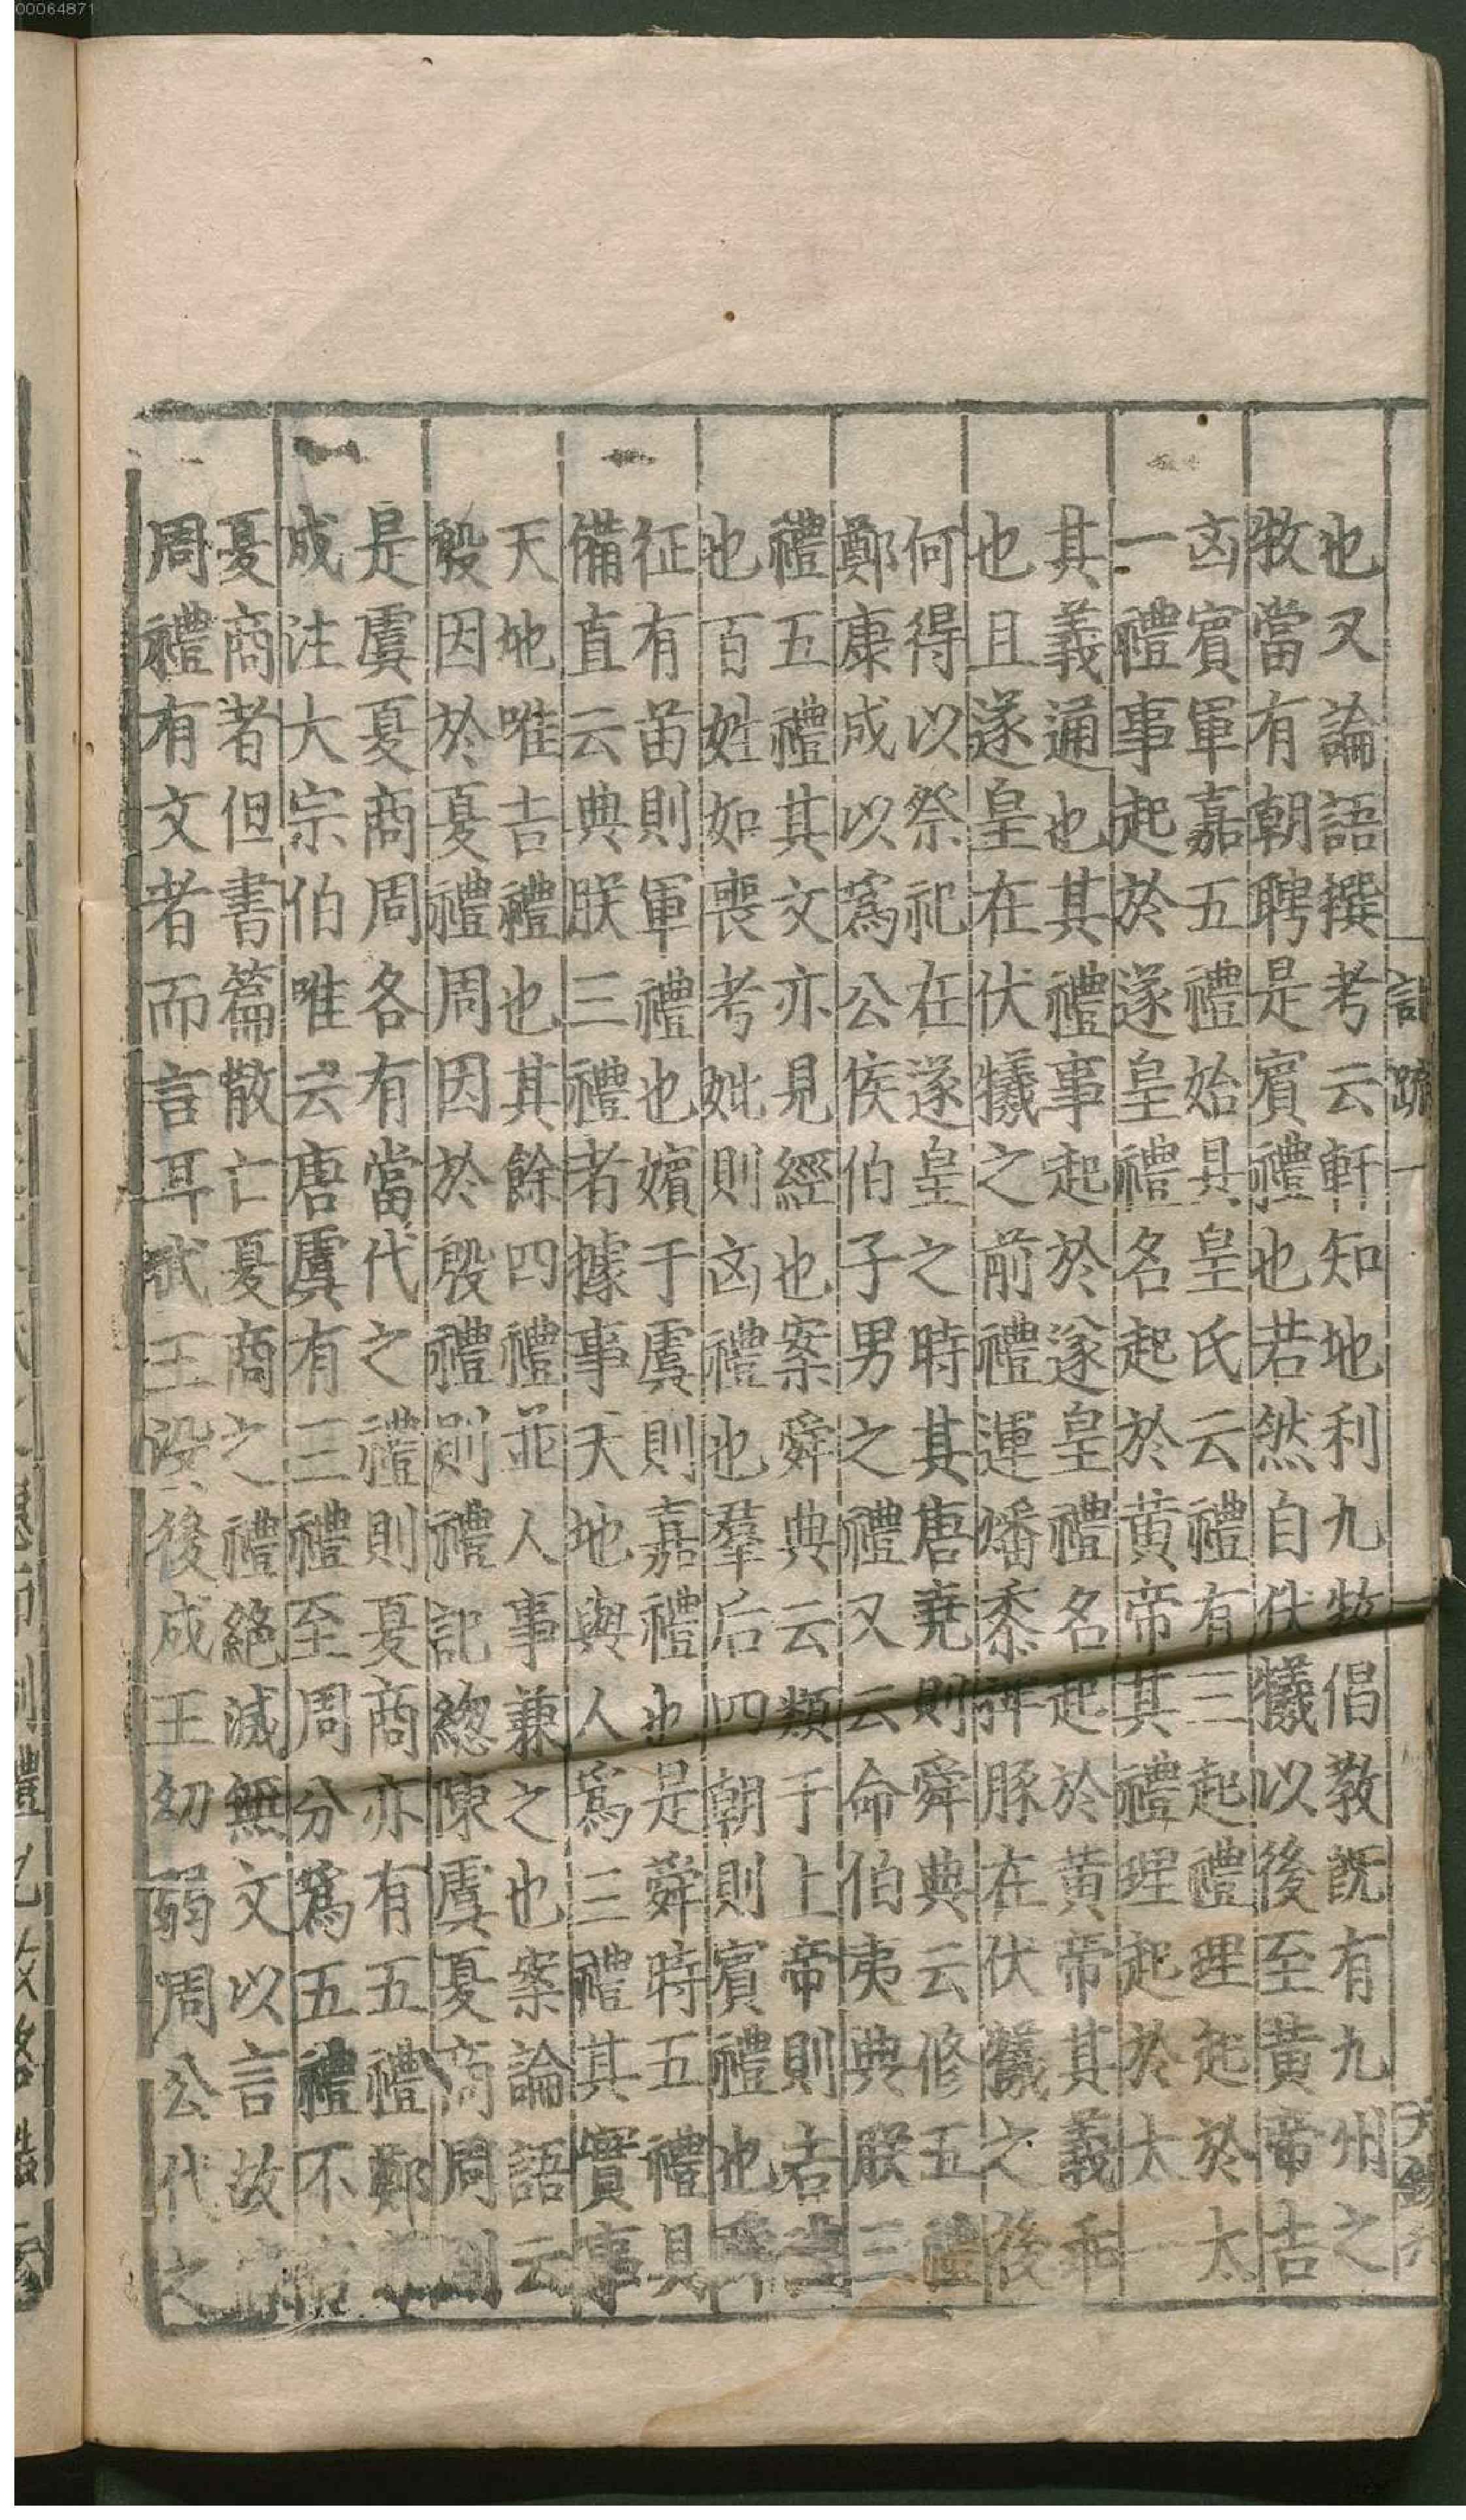 00064871
也又論語撰考云軒知地利九牧倡教旣有九州之
牧當有朝聘是賓禮也若然自伏犧以後至黃帝吉
凶賓軍嘉五禮始具皇氏云禮有三起禮理起於太
一禮事起於遂皇禮名起於黃帝其禮理起於太一
其義通也其禮事起於遂皇禮名起於黃帝其義乖
也且遂皇在伏犧之前禮運燔黍捭豚在伏犧之後
何得以祭祀在遂皇之時其唐堯則舜典云修五禮
鄭康成以爲公侯伯子男之禮又云命伯夷典朕三
禮五禮其文亦見經也案舜典云類于上帝則吉禮
也百姓如喪考妣則凶禮也羣后四朝則賓禮也舜
征有苗則軍禮也嬪于虞則嘉禮也是舜時五禮具
備直云典朕三禮者據事天地與人爲三禮其實事
天地唯吉禮也其餘四禮並人事兼之也案論語云
殷因於夏禮周因於殷禮則禮記緫陳虞夏商周則
是虞夏商周各有當代之禮則夏商亦有五禮鄭
成注大宗伯唯云唐虞有三禮至周分爲五禮不
夏商者但書篇散亡夏商之禮絶滅無文以言故
周禮有文者而言耳武王沒後成王幼弱周公代之
記疏一